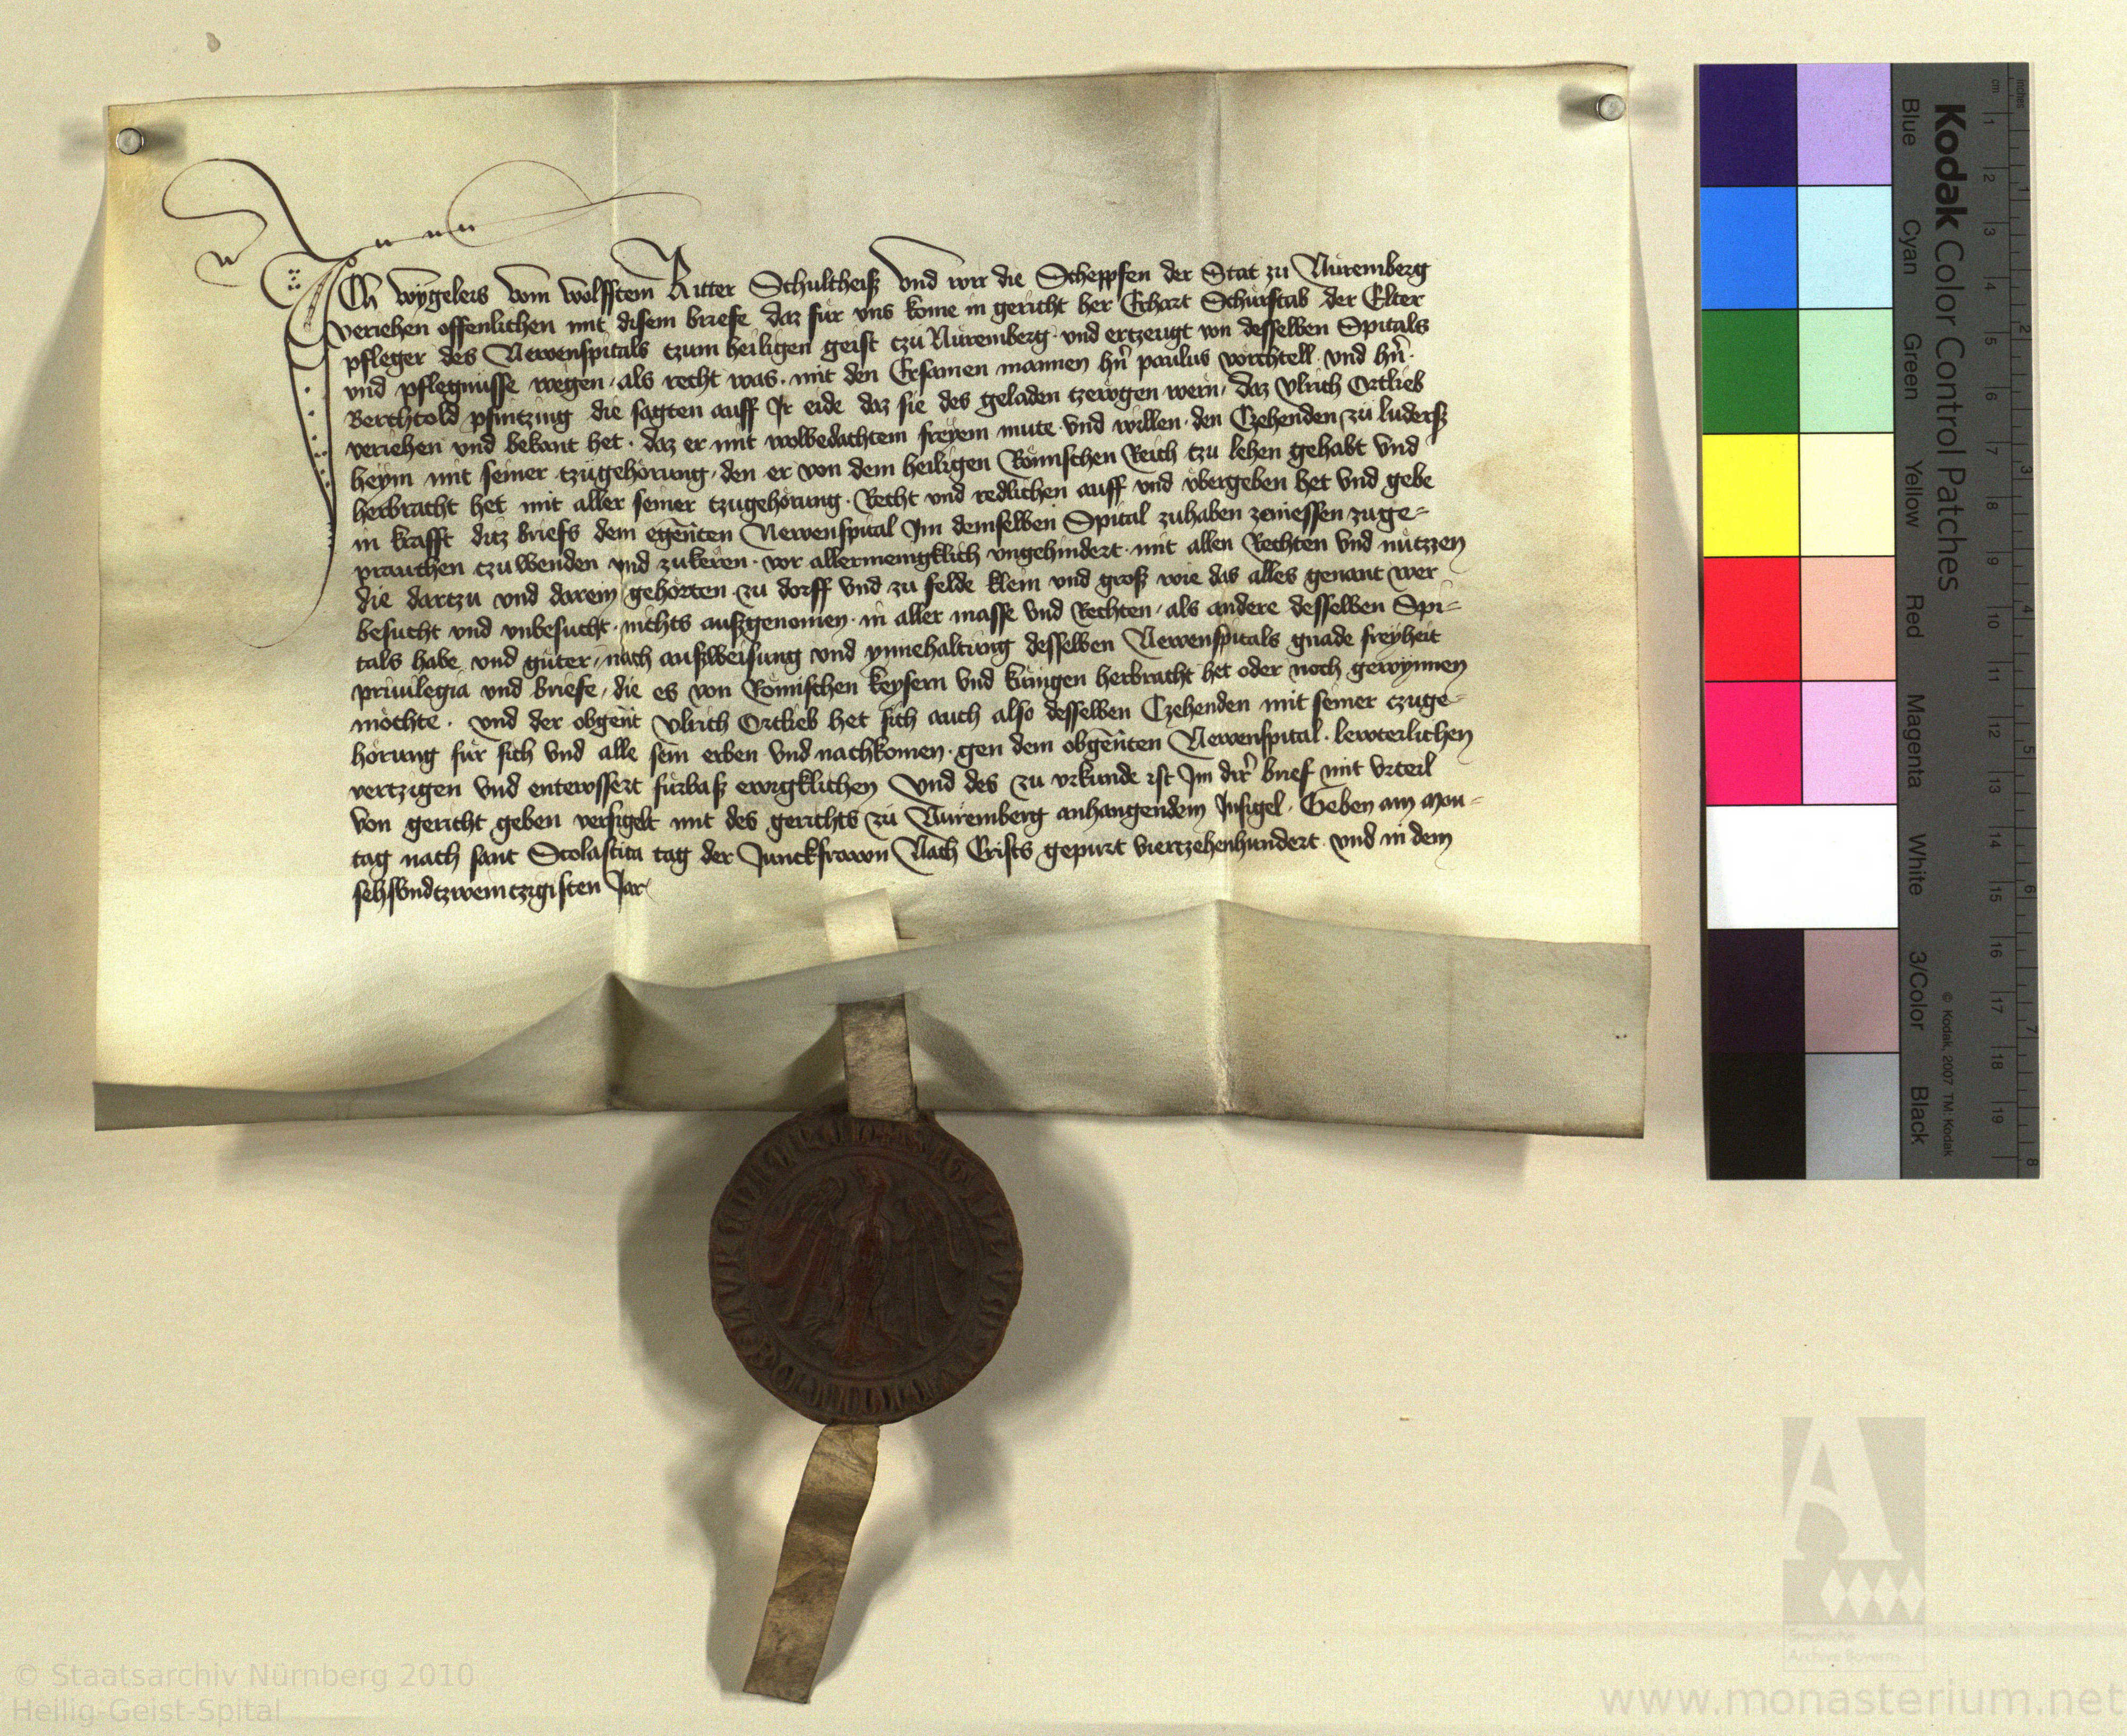 ICh wygeleis vom wolffstein Ritter Schultheiß vnd wir die Scheppfen der Stat zu Nüremberg
veriehen offenlichen mit disem briefe daz für vns kome in gericht her Erhart Schürstab der Elter
pfleger des Newenspitals tzum heiligen geist tzü Nüremberg · vnd ertzeugt von desselben Spitals
vnd pflegnüsse wegen · als recht was · mit den Ersamen mannen hn̄ paulus vorchtell · vnd hn̄ ·
Berchtold pfintzing die sagten auff Ir eide daz sie des geladen tzewgen wern / daz Vlrich Ortlieb
veriehen vnd bekant het · daz er mit wolbedachtem freyem mute vnd willen · den Czehenden zu luderß
heym mit seiner tzugehörung · den er von dem heiligen Römischen Reich tzu lehen gehabt vnd
herbracht het mit aller seiner tzugehörung · Recht vnd redlichen auff vnd vbergeben het vnd gebe
in krafft ditz briefs dem egen̄ten Newenspital Im demselben Spital zuhaben zeniessen zuge=
prauchen tzu wenden vnd zukeren · vor allermenigklich vngehindert · mit allen Rechten vnd nützzen
die dartzu vnd darein gehörten · zu dorff vnd zu felde klein vnd groß wie das alles genant wer
besucht vnd vnbesucht · nichts außgenomen · in aller masse vnd Rechten / als andere desselben Spi=
tals habe vnd güter / nach außweisung vnd ynnehaltung desselben Newenspitals gnade freyheit
priuilegia vnd briefe / die es von Römischen keysern vnd küingen herbracht het oder noch gewynnen
möchte · vnd der obgen̄t Vlrich Ortlieb het sich auch also desselben Czehenden mit seiner czuge=
hörung für sich vnd alle sein erben vnd nachkomen · gen dem obgen̄ten Newenspital · lewterlichen
vertzigen vnd entewssert fürbaß ewigklichen Vnd des zu vrkunde ist Im dir̄ brief mit vrteil
von gericht geben versigelt mit des gerichts zu Nüremberg anhangendem Insigel · Geben am mon=
tag nach sant Scolastica tag der Junckfrawn Nach Crists gepurt viertzehenhundert · vnd in dem
sehsvndtzweintzigisten Jar
Kodak Color Control Patches
Blue Cyan Green Yellow Red Magenta White 3/Color Black
© Kodak, 2007 TM: Kodak
cm 1 2 3 4 5 6 7 8 9 10 11 12 13 14 15 16 17 18 19
inches 1 2 3 4 5 6 7 8
© Staatsarchiv Nürnberg 2010
Heilig-Geist-Spital
www.monasterium.net